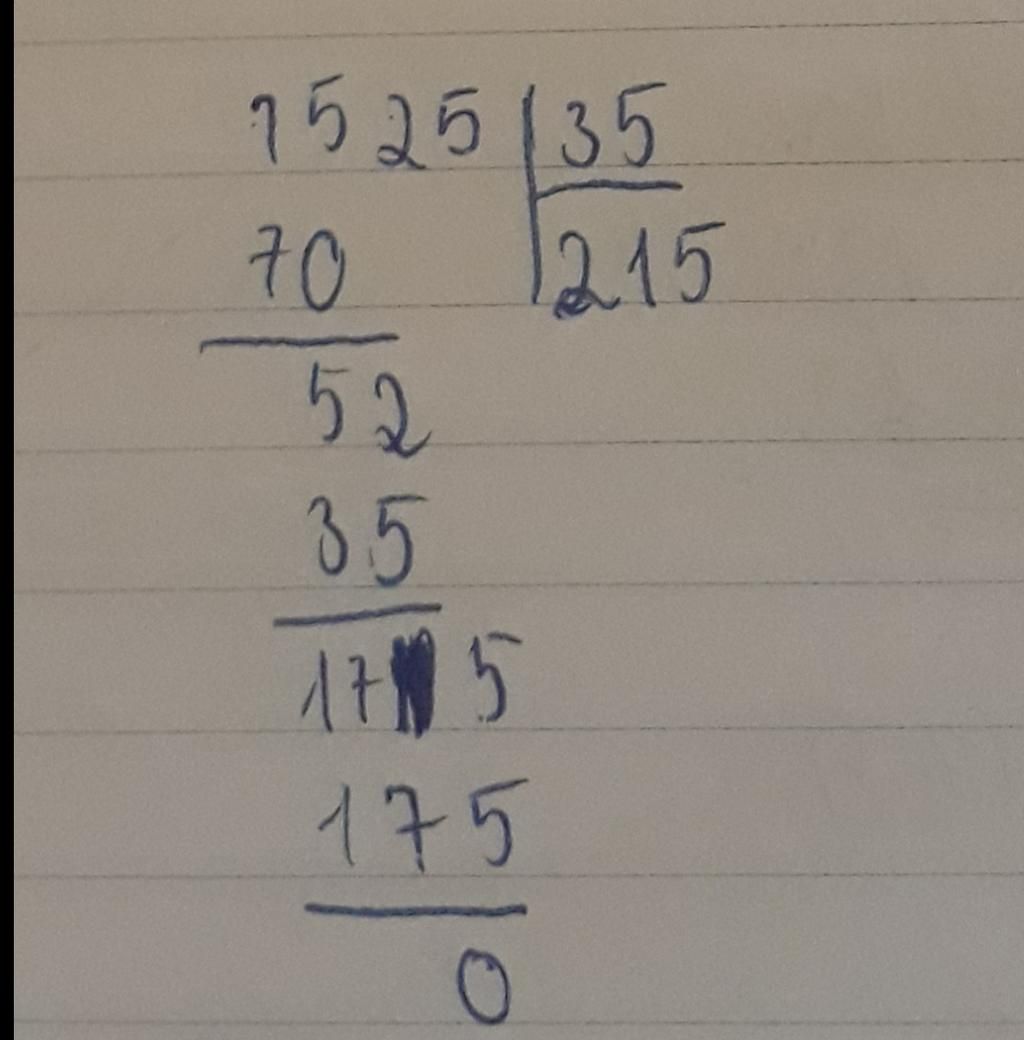 7525 35
70 215
52
35
175
175
0